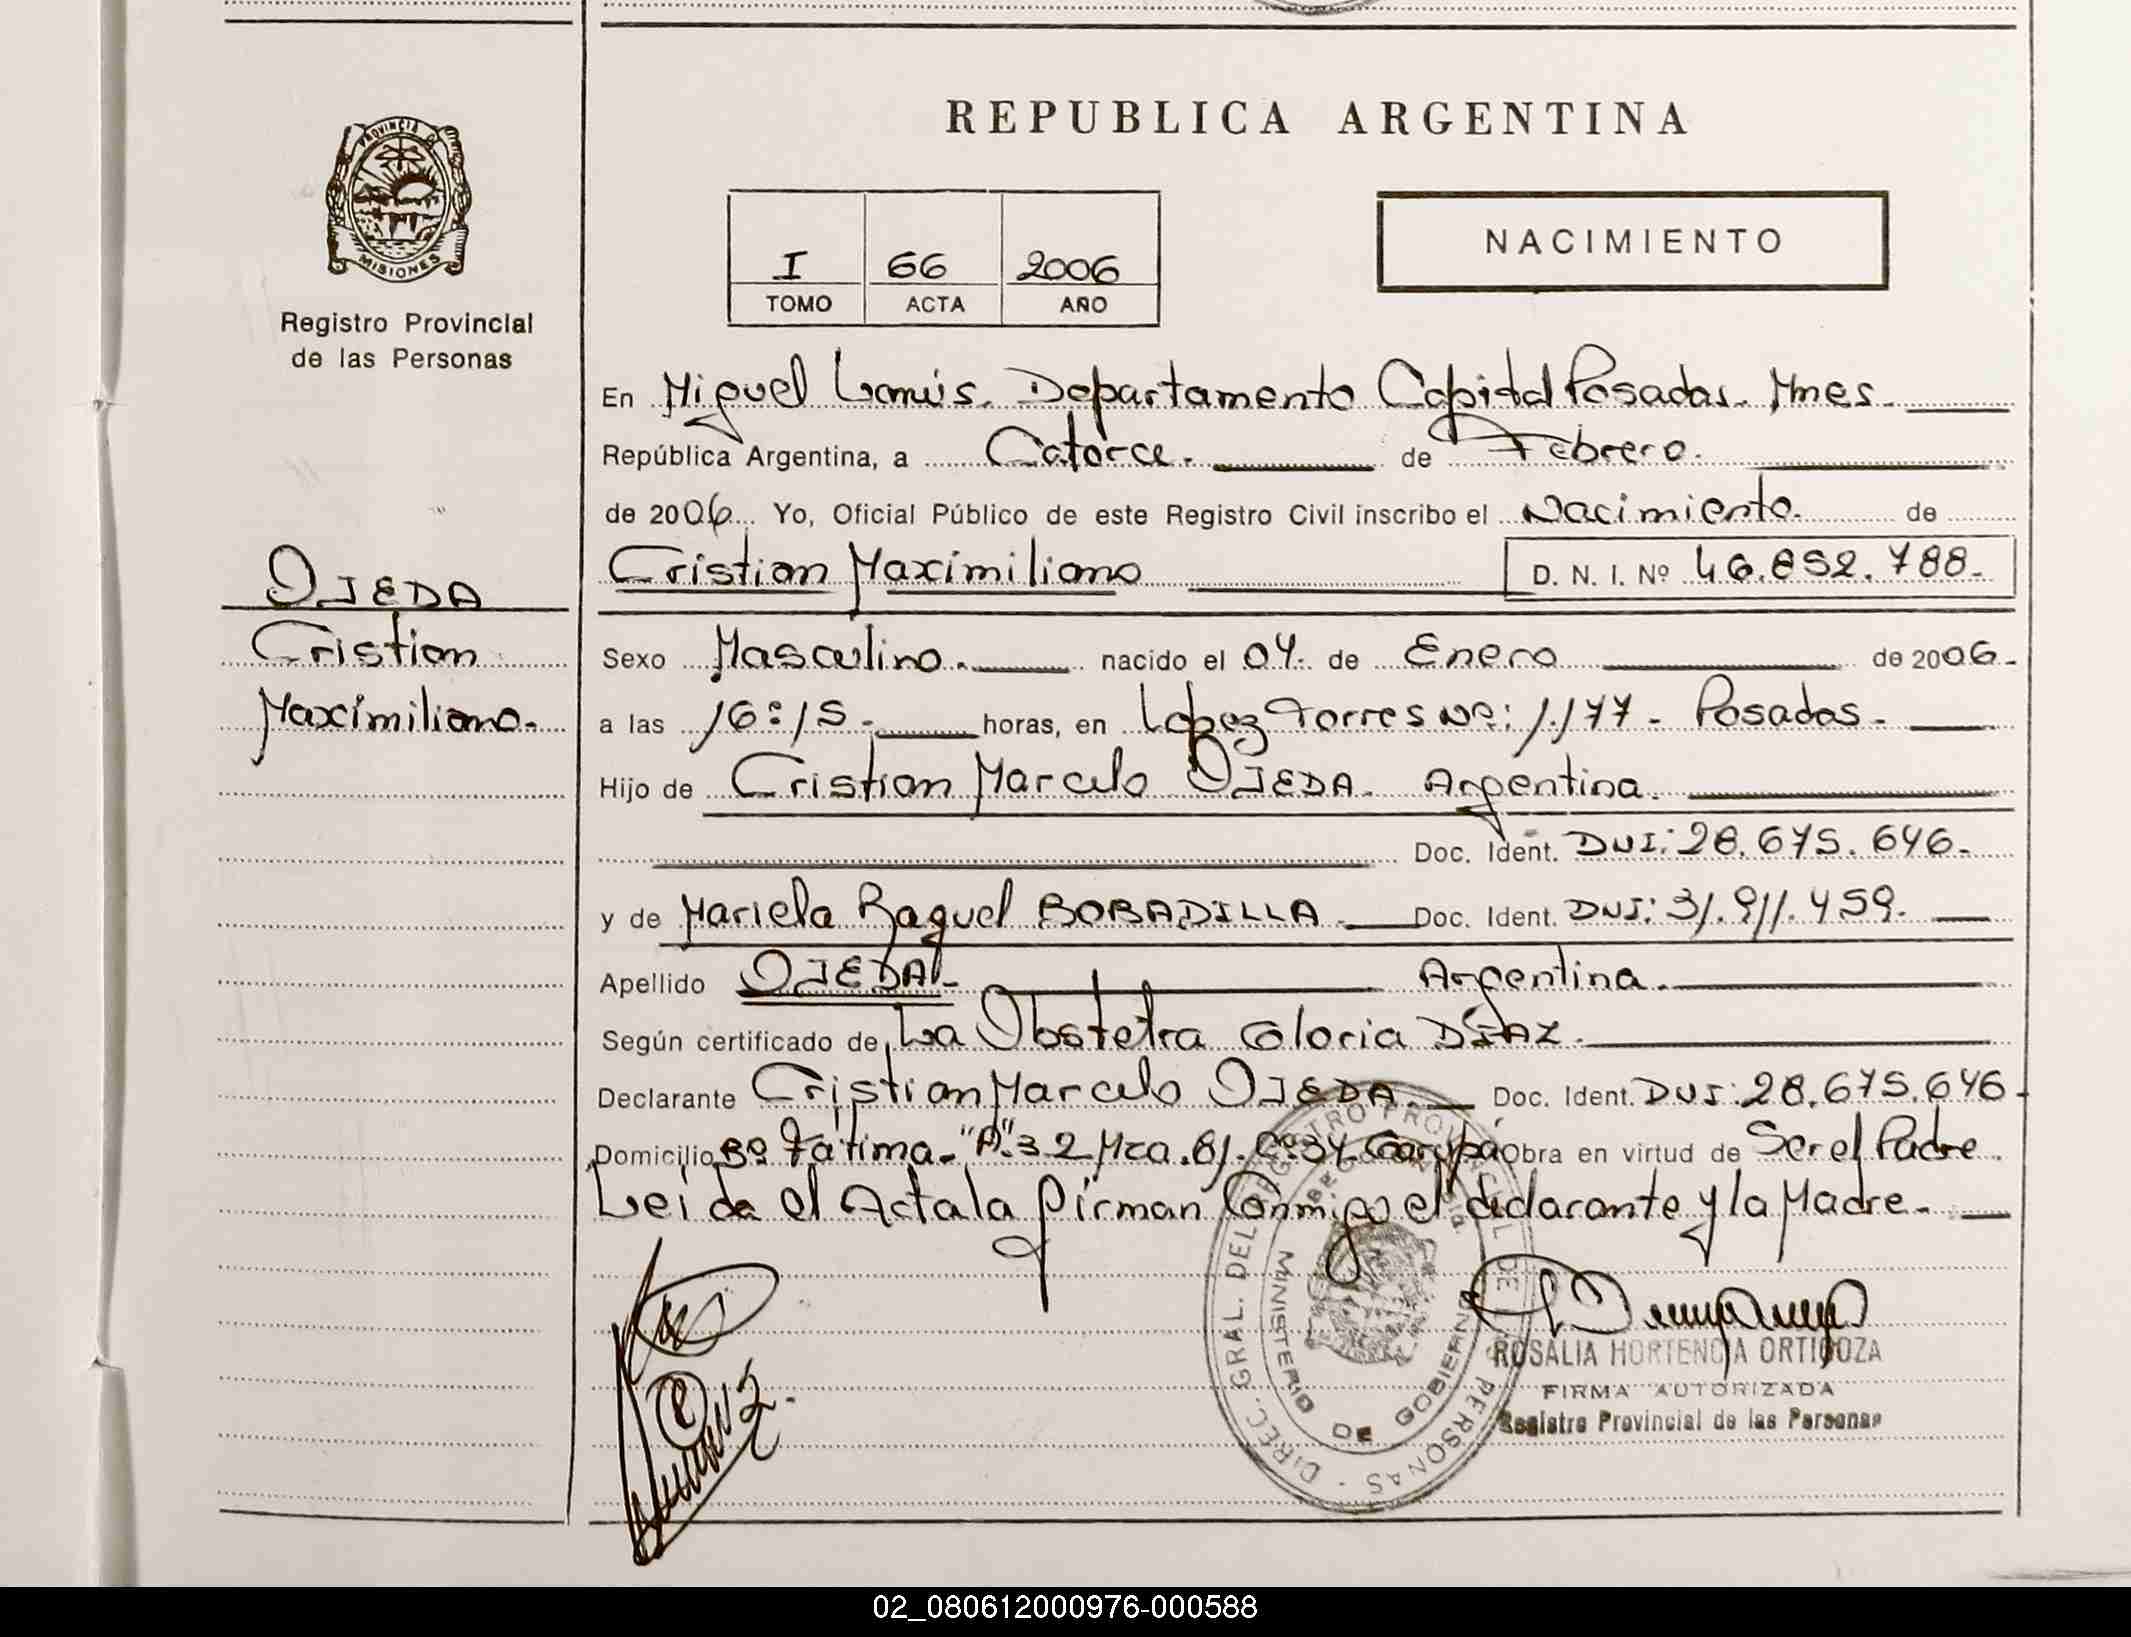 REPUBLICA ARGENTINA
PROVINCIA DE
MISIONES
Registro Provincial
de las Personas
I 66 2006
TOMO ACTA AÑO
NACIMIENTO
En Miguel Lanús. Departamento Capital Posadas. Mnes.
República Argentina, a Catorce. de Febrero.
de 2006 Yo, Oficial Público de este Registro Civil inscribo el Nacimiento. de
Cristian Maximiliano D. N. I. Nº 46.852.788.
OJEDA
Cristian
Maximiliano.
Sexo Masculino. nacido el 04. de Enero de 2006.
a las 16:15. horas, en Lopez Torres Nº: 1.177 - Posadas.
Hijo de Cristian Marcelo OJEDA. Argentina.
Doc. Ident. DNI: 28.675.646.
y de Mariela Raquel BOBADILLA. Doc. Ident. DNI: 31.911.459.
Apellido OJEDA. Argentina.
Según certificado de La Obstetra Gloria DÍAZ.
Declarante Cristian Marcelo OJEDA. Doc. Ident. DNI: 28.675.646
Domicilio Bº Fátima. "A" 32 Mza. 61. Cº34 Garupá Obra en virtud de Ser el Padre
Leida el Acta la firman Conmigo el declarante y la Madre.
DIREC. GRAL. DEL REGISTRO PROVINCIAL DE PERSONAS
MINISTERIO DE GOBIERNO
ROSALIA HORTENCIA ORTIGOZA
FIRMA AUTORIZADA
Registro Provincial de las Personas
02_080612000976-000588